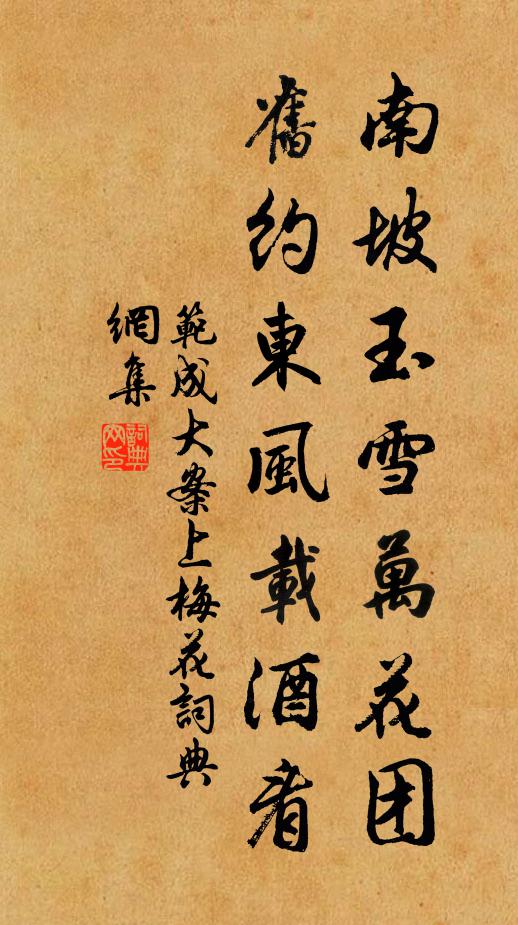 南坡玉雪萬花团
舊約東風載酒看
範成大案上梅花詞典
網集
詞典網印